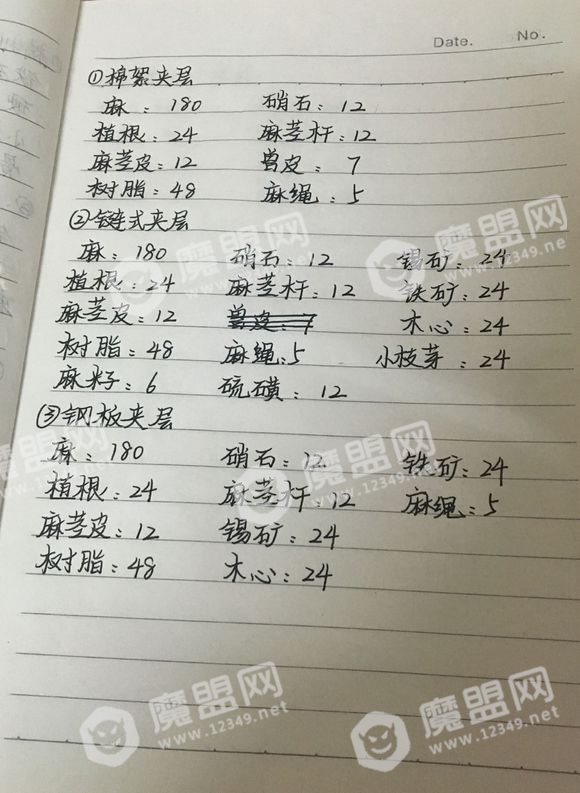 Date.    No.
①棉絮夹层
麻：180    硝石：12
植根：24    麻茎杆：12
麻茎皮：12    兽皮：7
树脂：48    麻绳：5
②链式夹层
麻：180    硝石：12    锡矿：24
植根：24    麻茎杆：12    铁矿：24
麻茎皮：12    兽皮：7    木心：24
树脂：48    麻绳：5    小枝芽：24
麻籽：6    硫磺：12
③钢板夹层
麻：180    硝石：12    铁矿：24
植根：24    麻茎杆：12    麻绳：5
麻茎皮：12    锡矿：24
树脂：48    木心：24
魔盟网
www.12349.net
魔盟网
www.12349.net
魔盟网
www.12349.net
魔盟网
www.12349.net
魔盟网
www.12349.net
魔盟网
www.12349.net